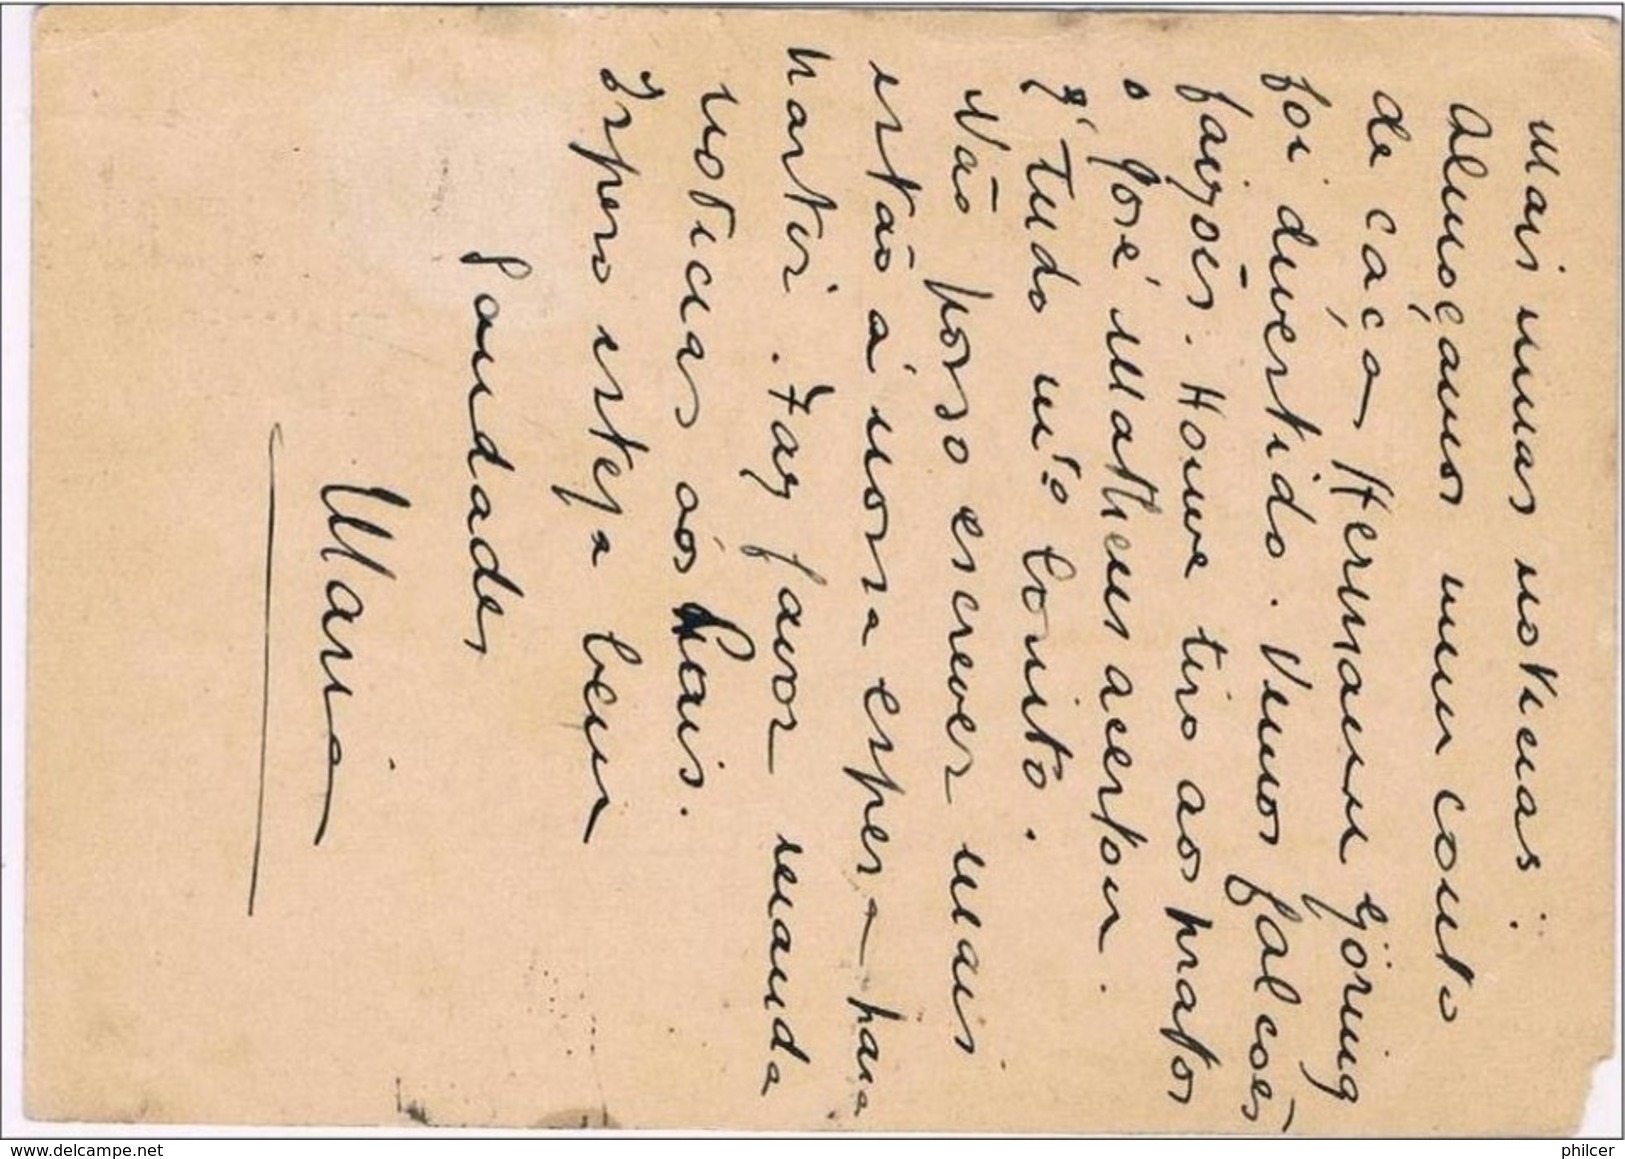 Mais umas noticias:
Almoçamos num couto
de caça Hermann Göring
foi divertido. Vimos falcões
faizões. Houve tiro aos pratos
o José Matheus acertou.
É tudo mto bonito.
Não posso escrever mais
estão á nossa espera para
partir. Faz favor manda
noticias aos Pais.
Espero esteja bem
Saudades
Maria
philcer
www.delcampe.net